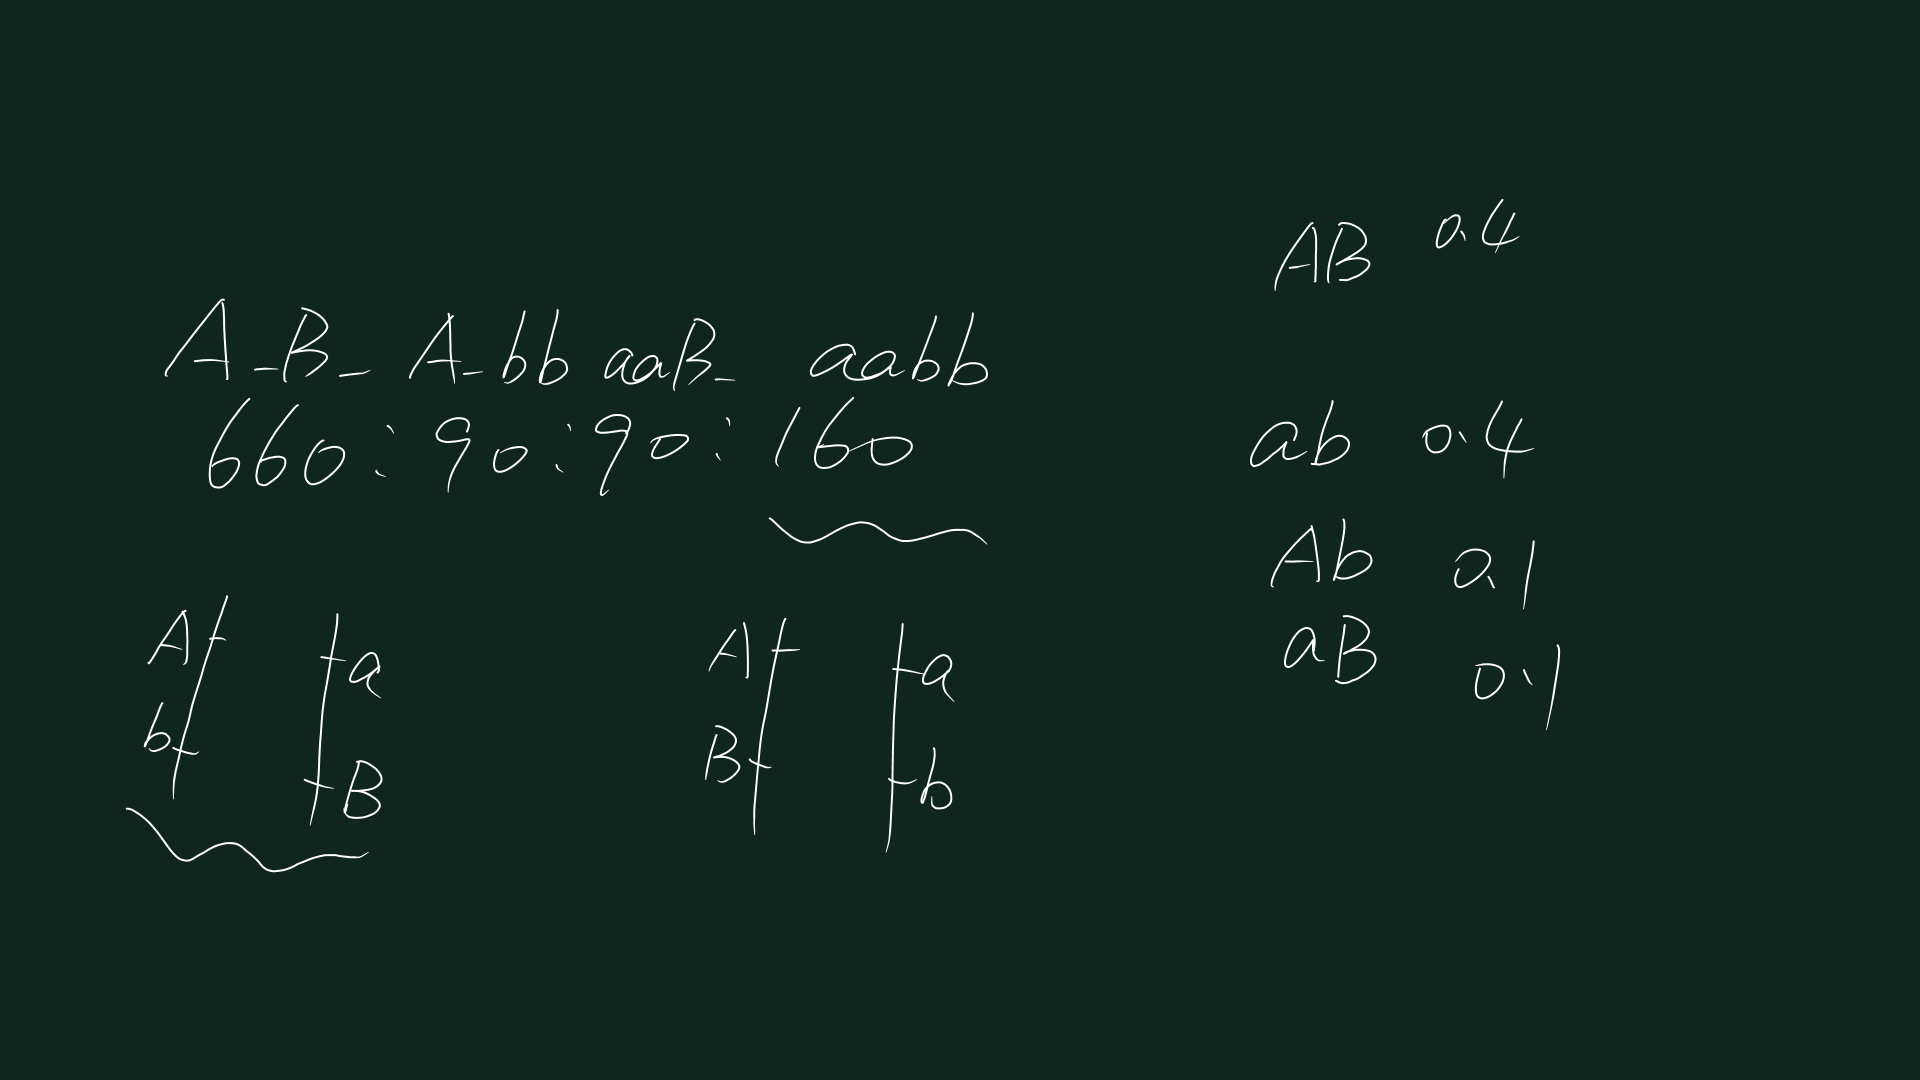 A_B_ A_bb aaB_ aabb
660:90:90:160
A a
b B
A a
B b
AB 0.4
ab 0.4
Ab 0.1
aB 0.1